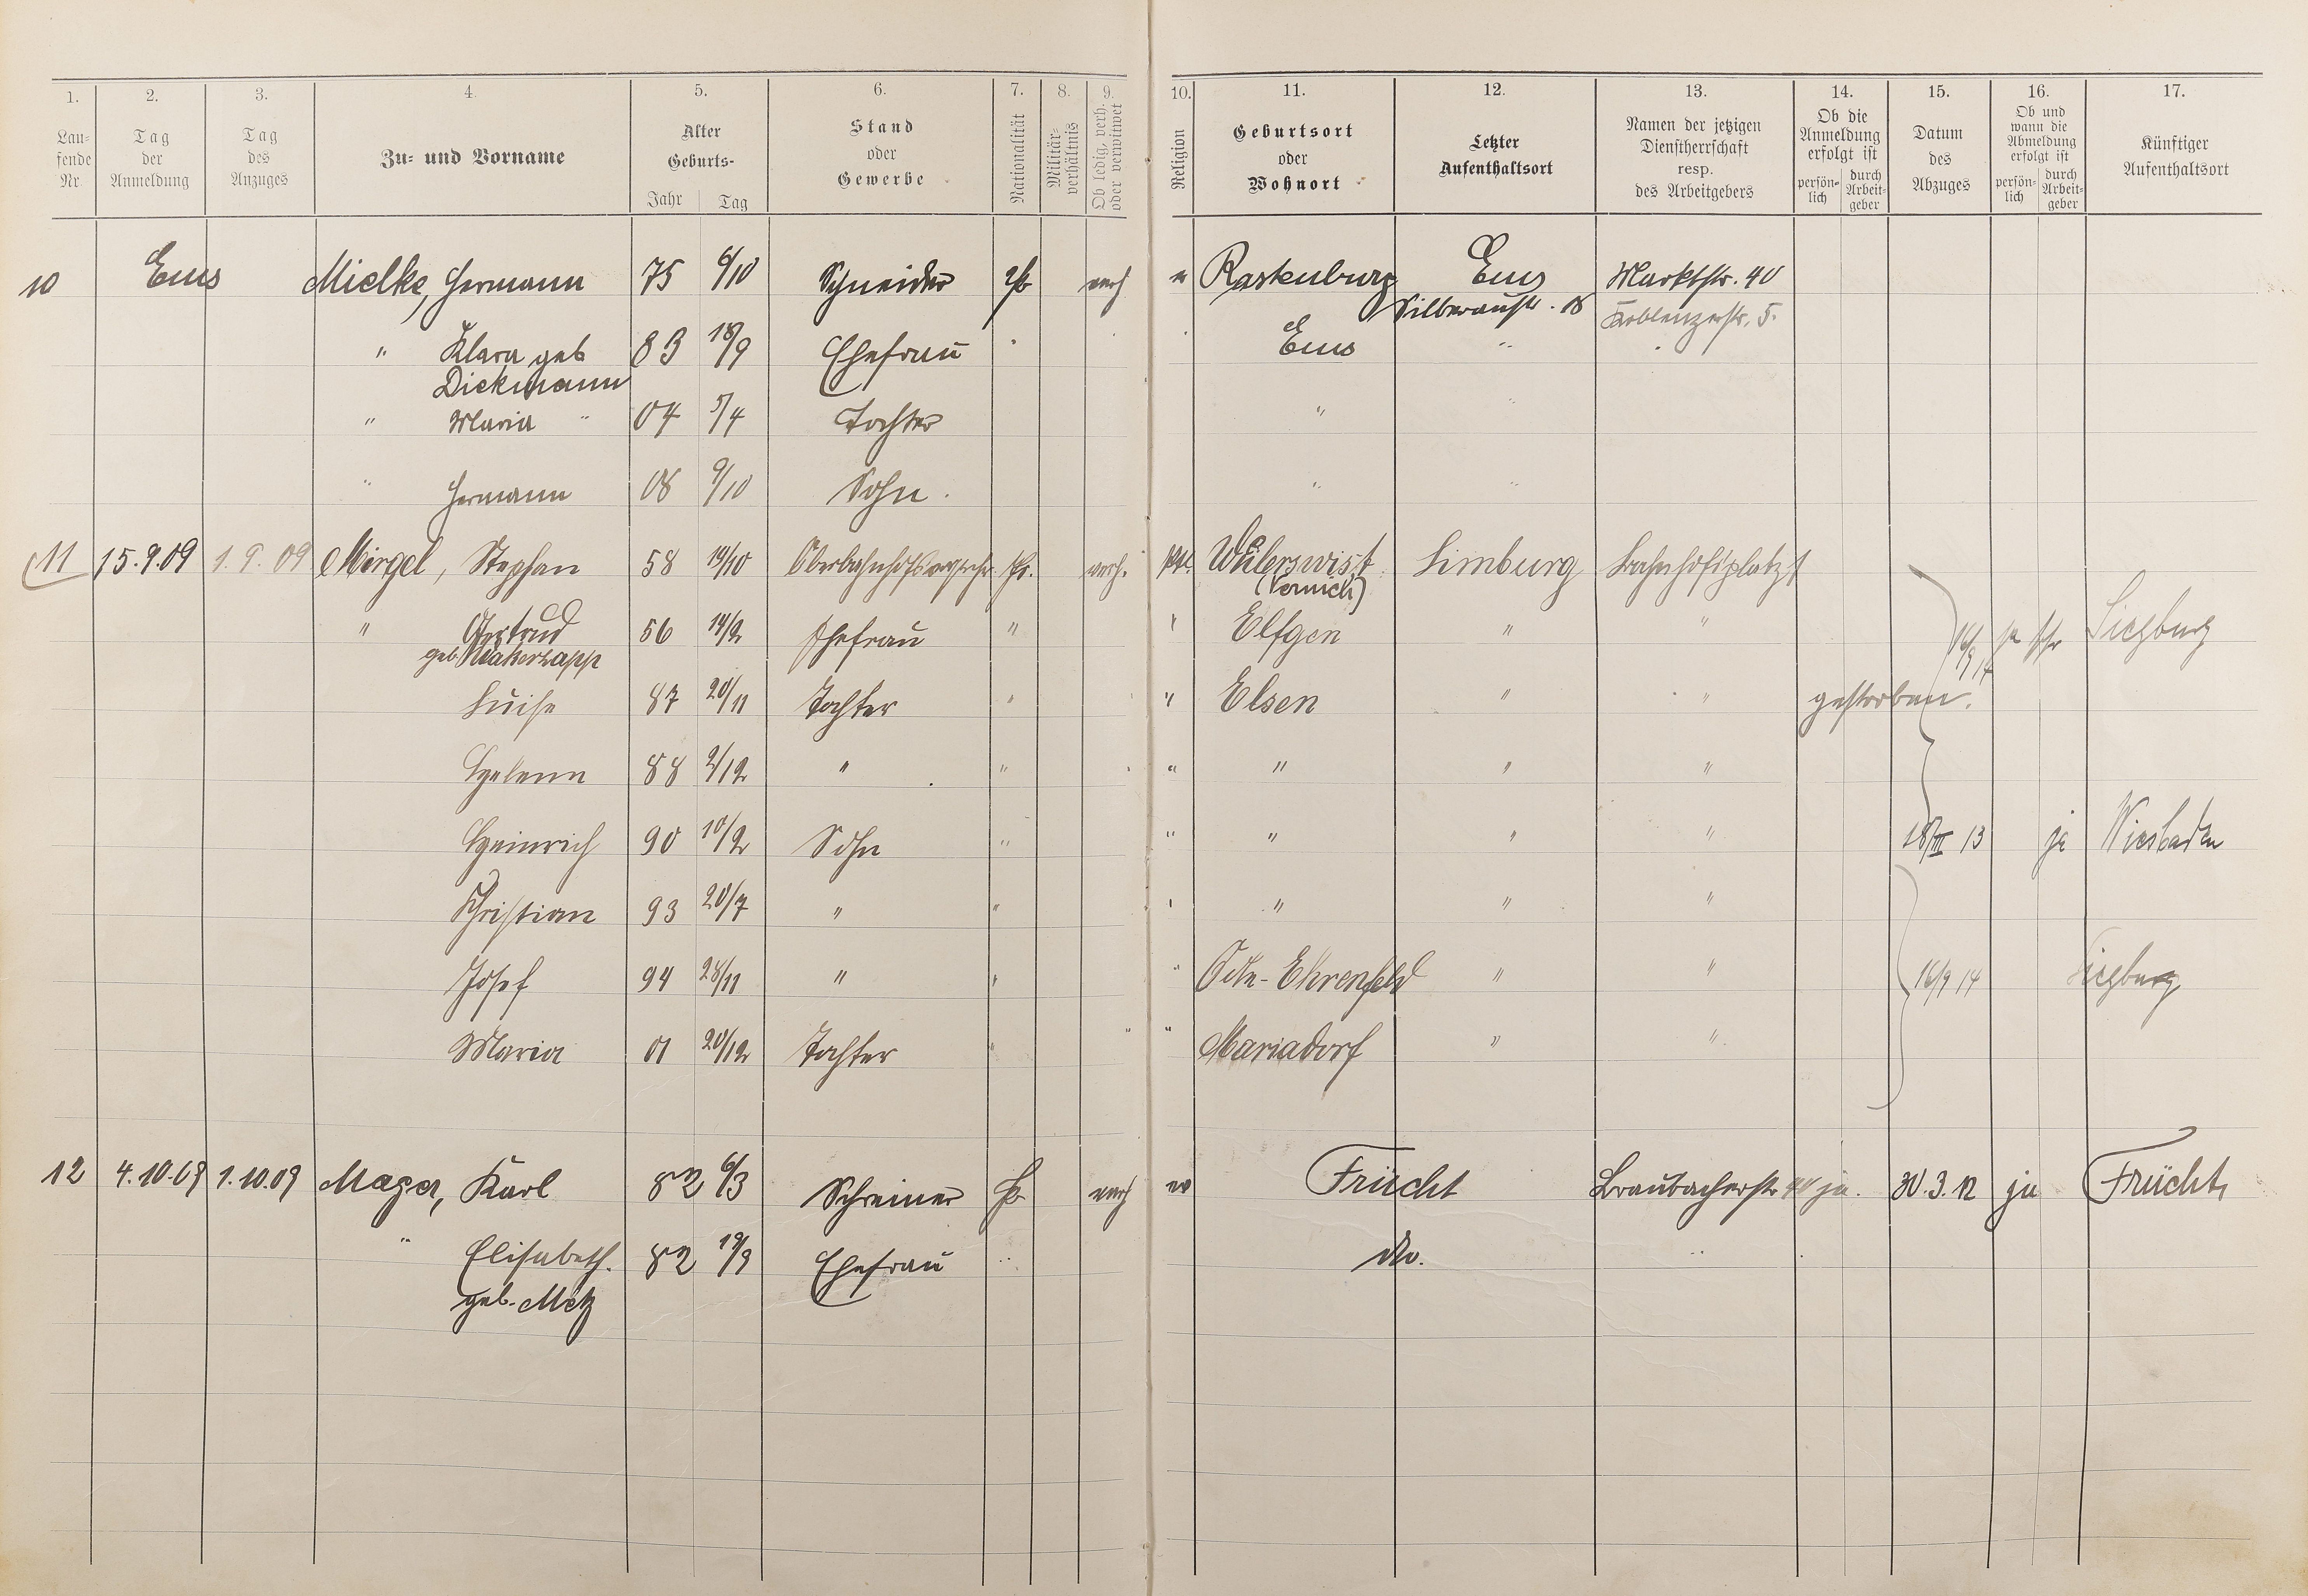 1. 2. 3. 4. 5. 6. 7. 8. 9. 10. 11. 12. 13. 14. 15. 16. 17.
Lau-
fende
Nr.
Tag
der
Anmeldung
Tag
des
Anzuges
Zu- und Vorname
Alter
Geburts-
Jahr Tag
Stand
oder
Gewerbe
Nationalität
Militär-
verhältnis
Ob ledig, verh.
oder verwitwet
Religion
Geburtsort
oder
Wohnort
Letzter
Aufenthaltsort
Namen der jetzigen
Dienstherrschaft
resp.
des Arbeitgebers
Ob die
Anmeldung
erfolgt ist
persön-
lich
durch
Arbeit-
geber
Datum
des
Abzuges
Ob und
wann die
Abmeldung
erfolgt ist
persön-
lich
durch
Arbeit-
geber
Künftiger
Aufenthaltsort
10 Ems Mielke, Hermann 75 6/10 Schneider verh Rastenburg Ems Marktstr. 40
Silberaustr. 18 Koblenzerstr. 5.
" Klara geb 83 18/9 Ehefrau " Ems "
Dickmann
" Maria " 04 5/4 Tochter " "
" Hermann 08 9/10 Sohn. " "
11 15.9.09 1.9.09 Mirgel, Stephan 58 14/10 Pr. verh. Weilerswist Limburg Bahnhofsplatz 1
(Vernich)
" Gertrud 56 14/2 Ehefrau " " Elfgen " " 16/9 14 Siegburg
geb.
Luise 87 20/11 Tochter " " Elsen " " gestorben.
Helena 88 2/12 " " " " " "
Heinrich 90 10/2 Sohn " " " " " 18/III 13 ja Wiesbaden
Christian 93 20/7 " " " " " "
Josef 94 28/11 " " " Cöln-Ehrenfeld " " 16/9 14 Siegburg
Maria 01 20/12 Tochter " " Mariadorf " "
12 4.10.09 1.10.09 Mager, Karl 82 6/3 Schreiner Pr verh ev Frücht Braubacherstr 40 ja. 30.3.12 ja Frücht
" Elisabeth. 82 19/9 Ehefrau " do. "
geb. Metz